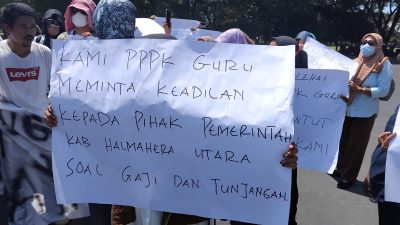 LEVI'S
KAMI PPPK GURU
MEMINTA KEADILAN
KEPADA PIHAK PEMERINTAH
KAB HALMAHERA UTARA
SOAL GAJI DAN TUNJANGAN
GURU
KAMI